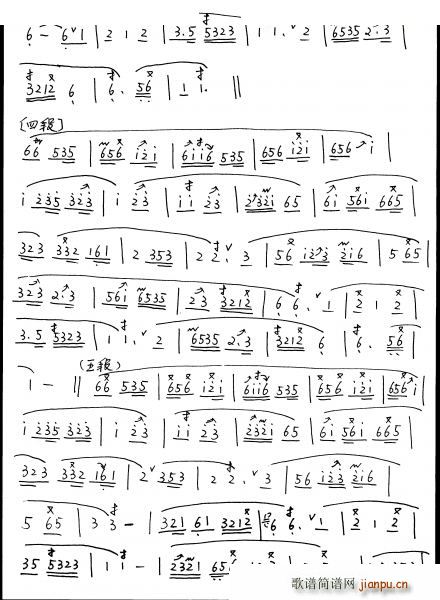 6 - 6 1 | 2 1 2 | 3.5 5323 | 1 1. 2 | 6535 2.3 |
3212 6 | 6. 56 | 1 1. ||
[四段]
66 535 | 656 i2i | 6ii6 535 | 656 i2i | 656 i |
i 235 323 | i 23 | i i 23 | 2321 65 | 6i 56i 665 |
323 332 161 | 2 353 | 2 2. 3 | 56 i23 2i6 | 5 65 |
323 2.3 | 56i 6535 | 23 3212 | 6 6. 1 | 2 1 2 |
3.5 5323 | 1 1. 2 | 6535 2.3 | 3212 6 | 6. 56 |
(五段)
1 - || 66 535 | 656 i2i | 6ii6 535 | 656 i2i | 656 i |
i 235 323 | i 23 | i i 23 | 2321 65 | 6i 56i 665 |
323 332 161 | 2 353 | 2 2. 3 | 56 i23 2i6 |
5 65 | 3 3 - | 321 61 3212 | 6 6. 1 | 2 1 2 |
35 5323 | 1 1 - | 2321
歌谱简谱网 jianpu.cn